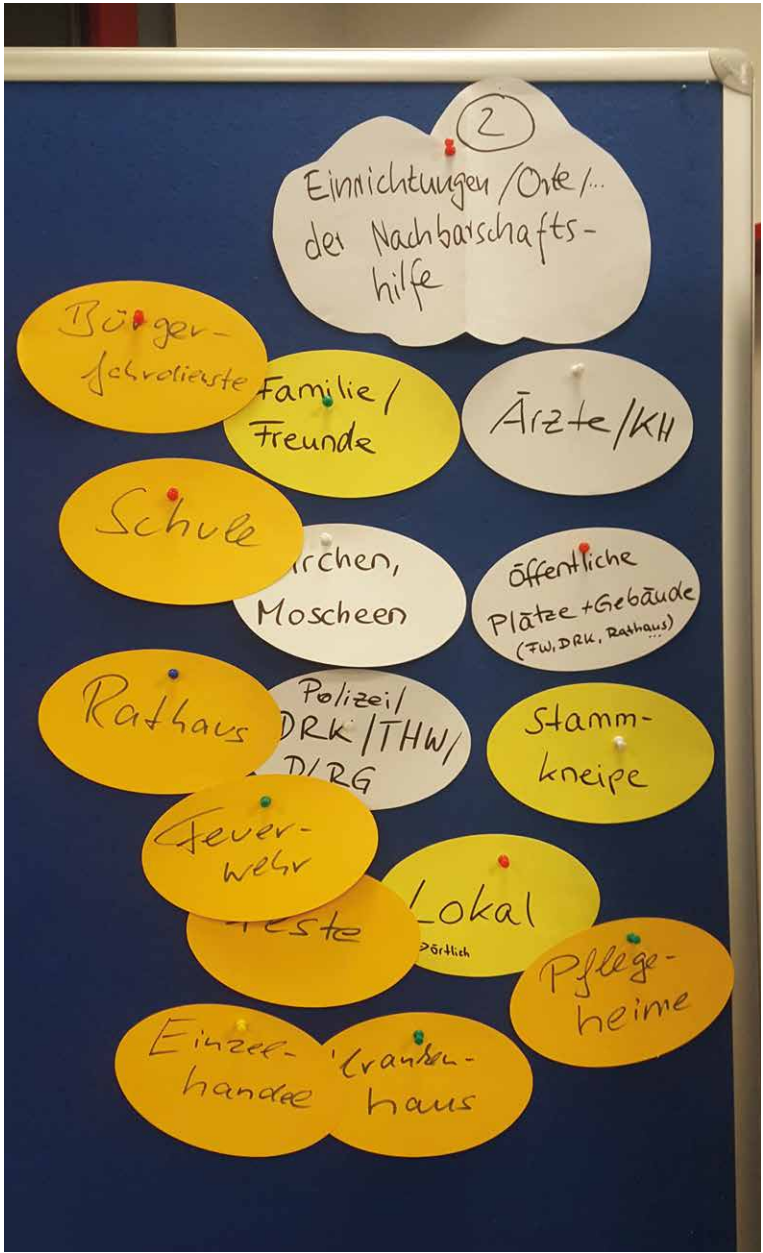 2
Einrichtungen/Orte/...
der Nachbarschafts-
hilfe
Bürger-
fahrdienste
Familie/
Freunde
Ärzte/KH
Schule
irchen,
Moscheen
öffentliche
Plätze+Gebäude
(FW, DRK, Rathaus)
...
Rathaus
Polizei/
DRK/THW/
DLRG
Stamm-
kneipe
Feuer-
wehr
Feste
Lokal
>örtlich
Pflege-
heime
Einzel-
handel
Kranken-
haus